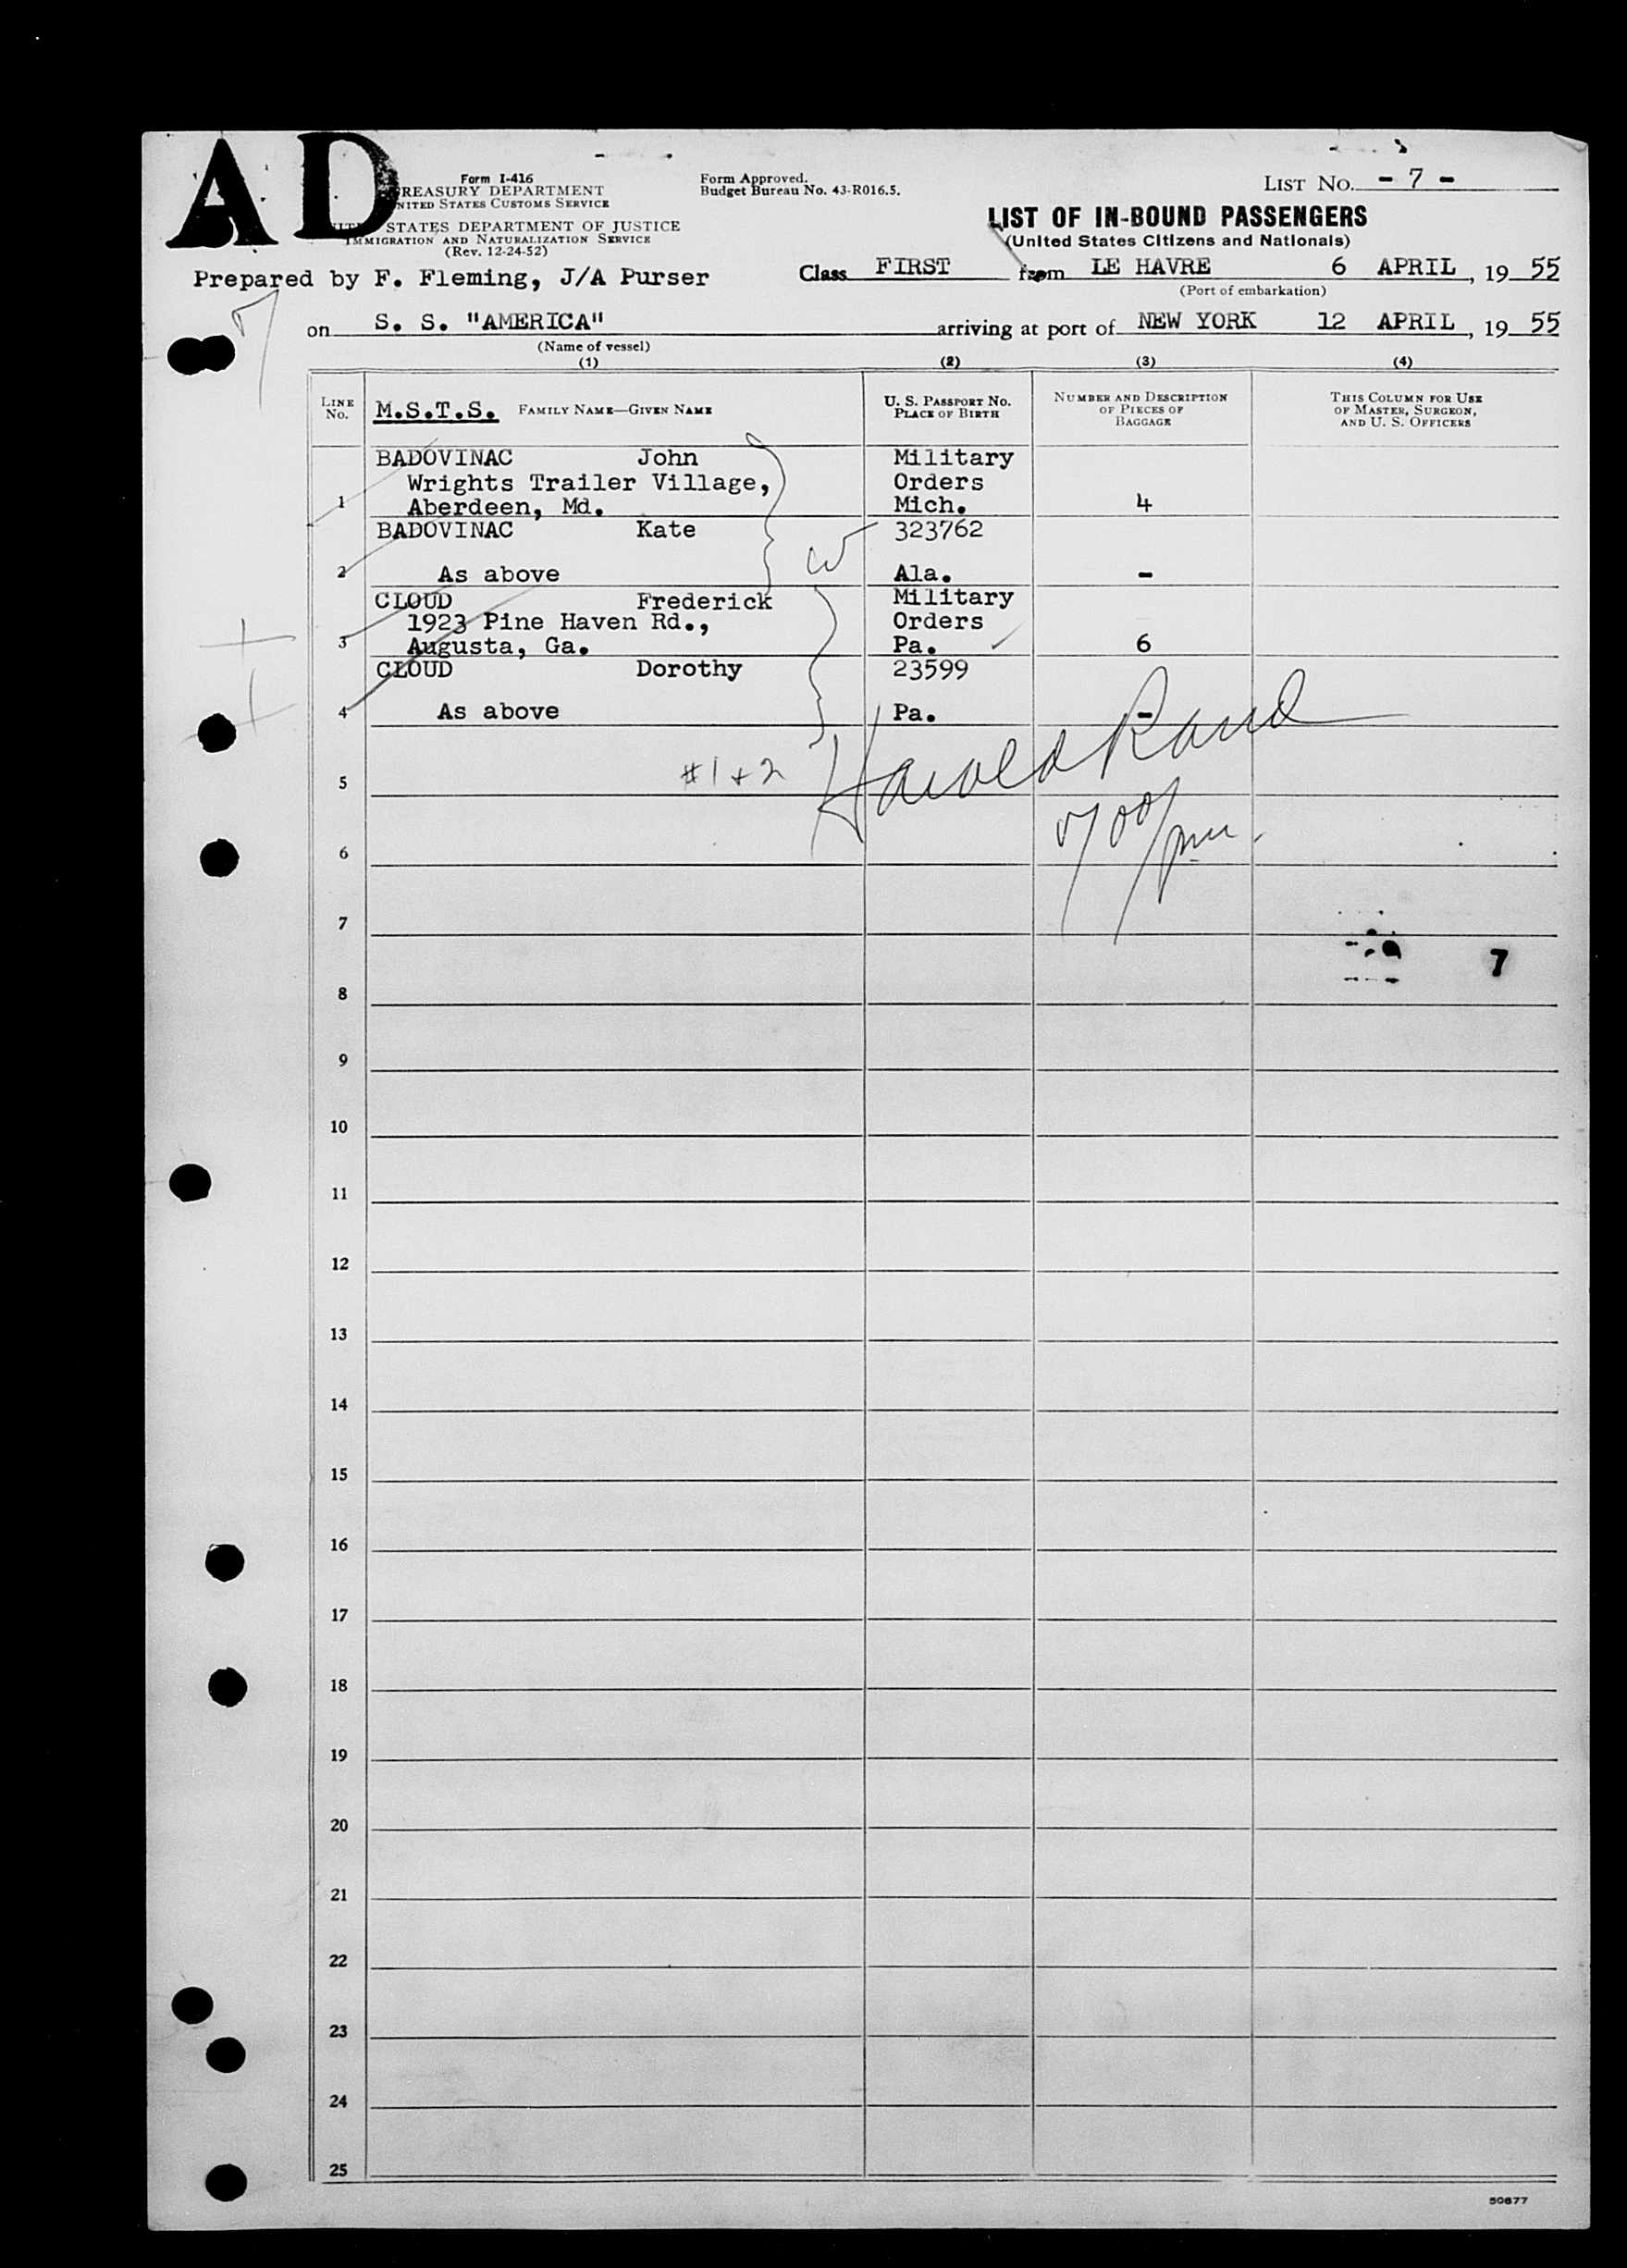 AD
Form I-416
TREASURY DEPARTMENT
UNITED STATES CUSTOMS SERVICE
STATES DEPARTMENT OF JUSTICE
IMMIGRATION AND NATURALIZATION SERVICE
(Rev. 12-24-52)
Form Approved.
Budget Bureau No. 43-R016.5.
LIST NO. - 7 -
LIST OF IN-BOUND PASSENGERS
(United States Citizens and Nationals)
Prepared by F. Fleming, J/A Purser
Class FIRST from LE HAVRE 6 APRIL, 19 55
(Port of embarkation)
on S. S. "AMERICA" arriving at port of NEW YORK 12 APRIL, 19 55
(Name of vessel)
(1) (2) (3) (4)
LINE NO. M.S.T.S. FAMILY NAME—GIVEN NAME U. S. PASSPORT NO. PLACE OF BIRTH NUMBER AND DESCRIPTION OF PIECES OF BAGGAGE THIS COLUMN FOR USE OF MASTER, SURGEON, AND U. S. OFFICERS
BADOVINAC John Military
Wrights Trailer Village, Orders
1 Aberdeen, Md. Mich. 4
BADOVINAC Kate 323762
2 As above Ala. -
CLOUD Frederick Military
1923 Pine Haven Rd., Orders
3 Augusta, Ga. Pa. 6
CLOUD Dorothy 23599
4 As above Pa. -
#1+2 Harold Rand
5
6
7
7
8
9
10
11
12
13
14
15
16
17
18
19
20
21
22
23
24
25
50677